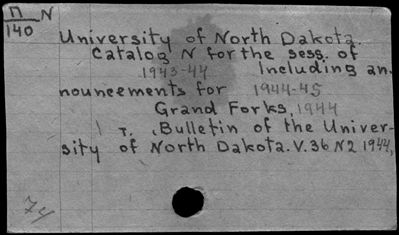 П N
140
University of North Dakota.
Catalog N for the sess. of
1943-44 Including an-
nouncements for 1944-45
Grand Forks, 1944
1 т. , Bulletin of the Univer-
sity of North Dakota. V.36 N2 1944,
74